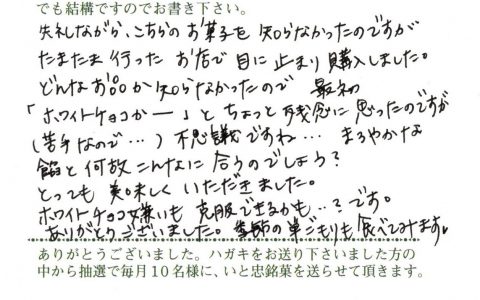 でも結構ですのでお書き下さい。
失礼ながら、こちらのお菓子を知らなかったのですが
たまたま行ったお店で目に止まり購入しました。
どんなお品か知らなかったので 最初
「ホワイトチョコかー」とちょっと残念に思ったのですが
(苦手なので…)不思議ですね… まろやかな
餡と何故こんなに合うのでしょう?
とっても美味しくいただきました。
ホワイトチョコ嫌いも克服できるかも…?です。
ありがとうございました。季節の巣ごもりも食べてみます。
ありがとうございました。ハガキをお送り下さいました方の
中から抽選で毎月10名様に、いと忠銘菓を送らせて頂きます。